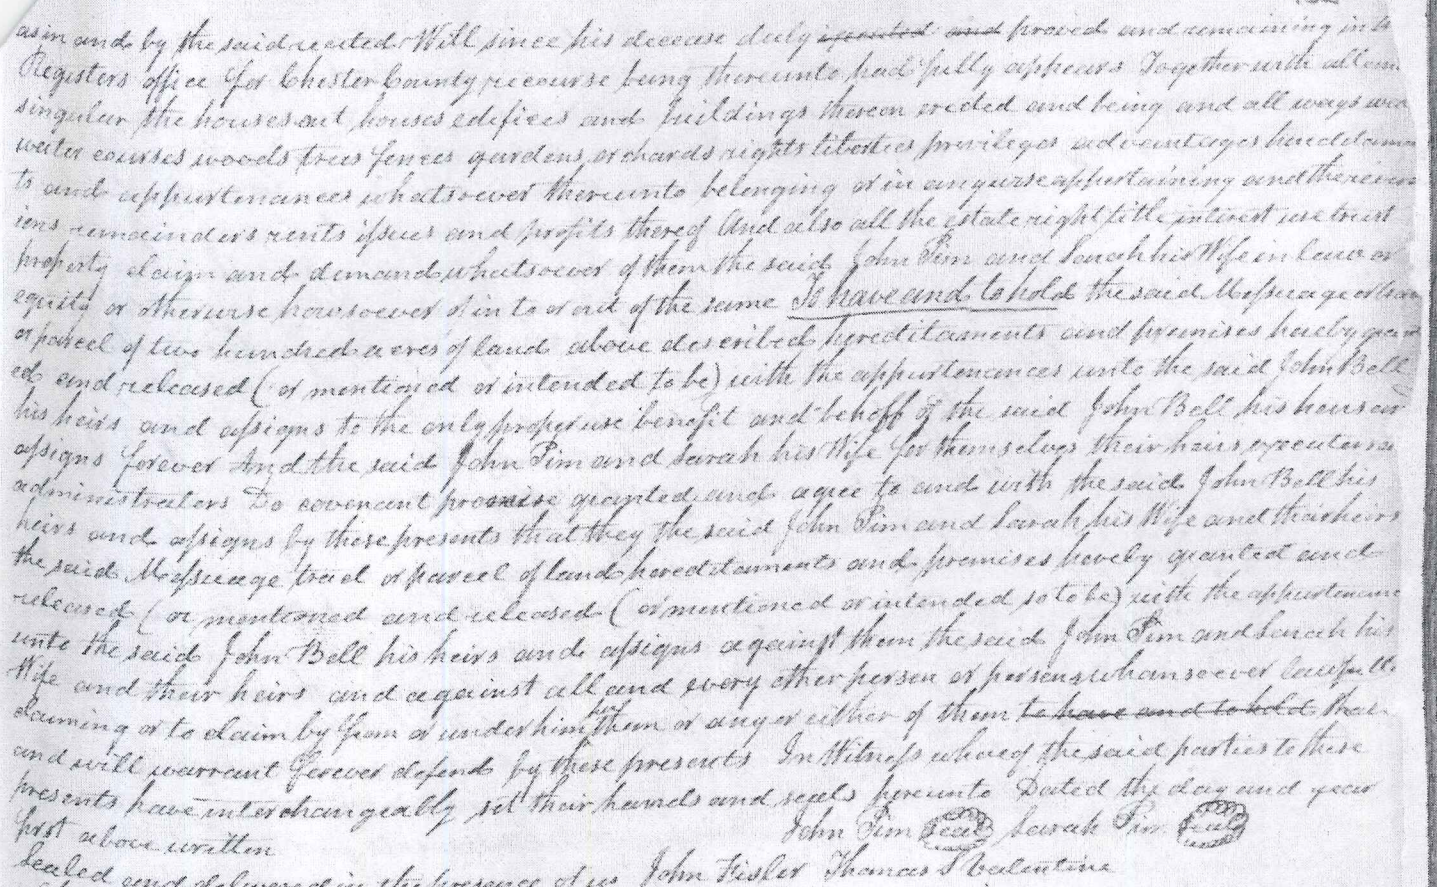 as in and by the said recited Will since his decease duly executed and proved and remaining in
Registers office for Chester County recourse being thereunto had fully appears Together with all
singular the houses out houses edifices and buildings thereon erected and being and all ways
water courses woods trees fences gardens orchards rights liberties privileges advantages
ts and appurtenances whatsoever thereunto belonging or in anywise appertaining and the
ions remainders rents issues and profits thereof And also all the estate right title interest use trust
property claim and demand whatsoever of them the said John Pim and Sarah his Wife in law or
equity or otherwise howsoever of in to or out of the same To have and to hold the said Messuage or
or parcel of two hundred acres of land above described hereditaments and premises hereby
ed and released (or mentioned or intended to be) with the appurtenances unto the said John Bell
his heirs and assigns to the only proper use benefit and behoff of the said John Bell his heirs
assigns forever And the said John Pim and Sarah his Wife for themselves their heirs executors
administrators Do covenant promise granted and agree to and with the said John Bell his
heirs and assigns by these presents that they the said John Pim and Sarah his Wife and their heirs
the said Messuage tract or parcel of land hereditaments and premises hereby granted and
released (or mentioned and released (or mentioned or intended so to be) with the
unto the said John Bell his heirs and assigns against them the said John Pim and Sarah his
Wife and their heirs and against all and every other person or persons whansoever
claiming or to claim by from or under him her them or any or either of them to have and to hold
and will warrant forever defend by these presents In Witness whereof the said parties to these
presents have interchangeably set their hands and seals hereunto Dated the day and year
first above written John Pim seal Sarah Pim seal
Sealed and delivered in the presence of us John Fisler Thomas S Valentine